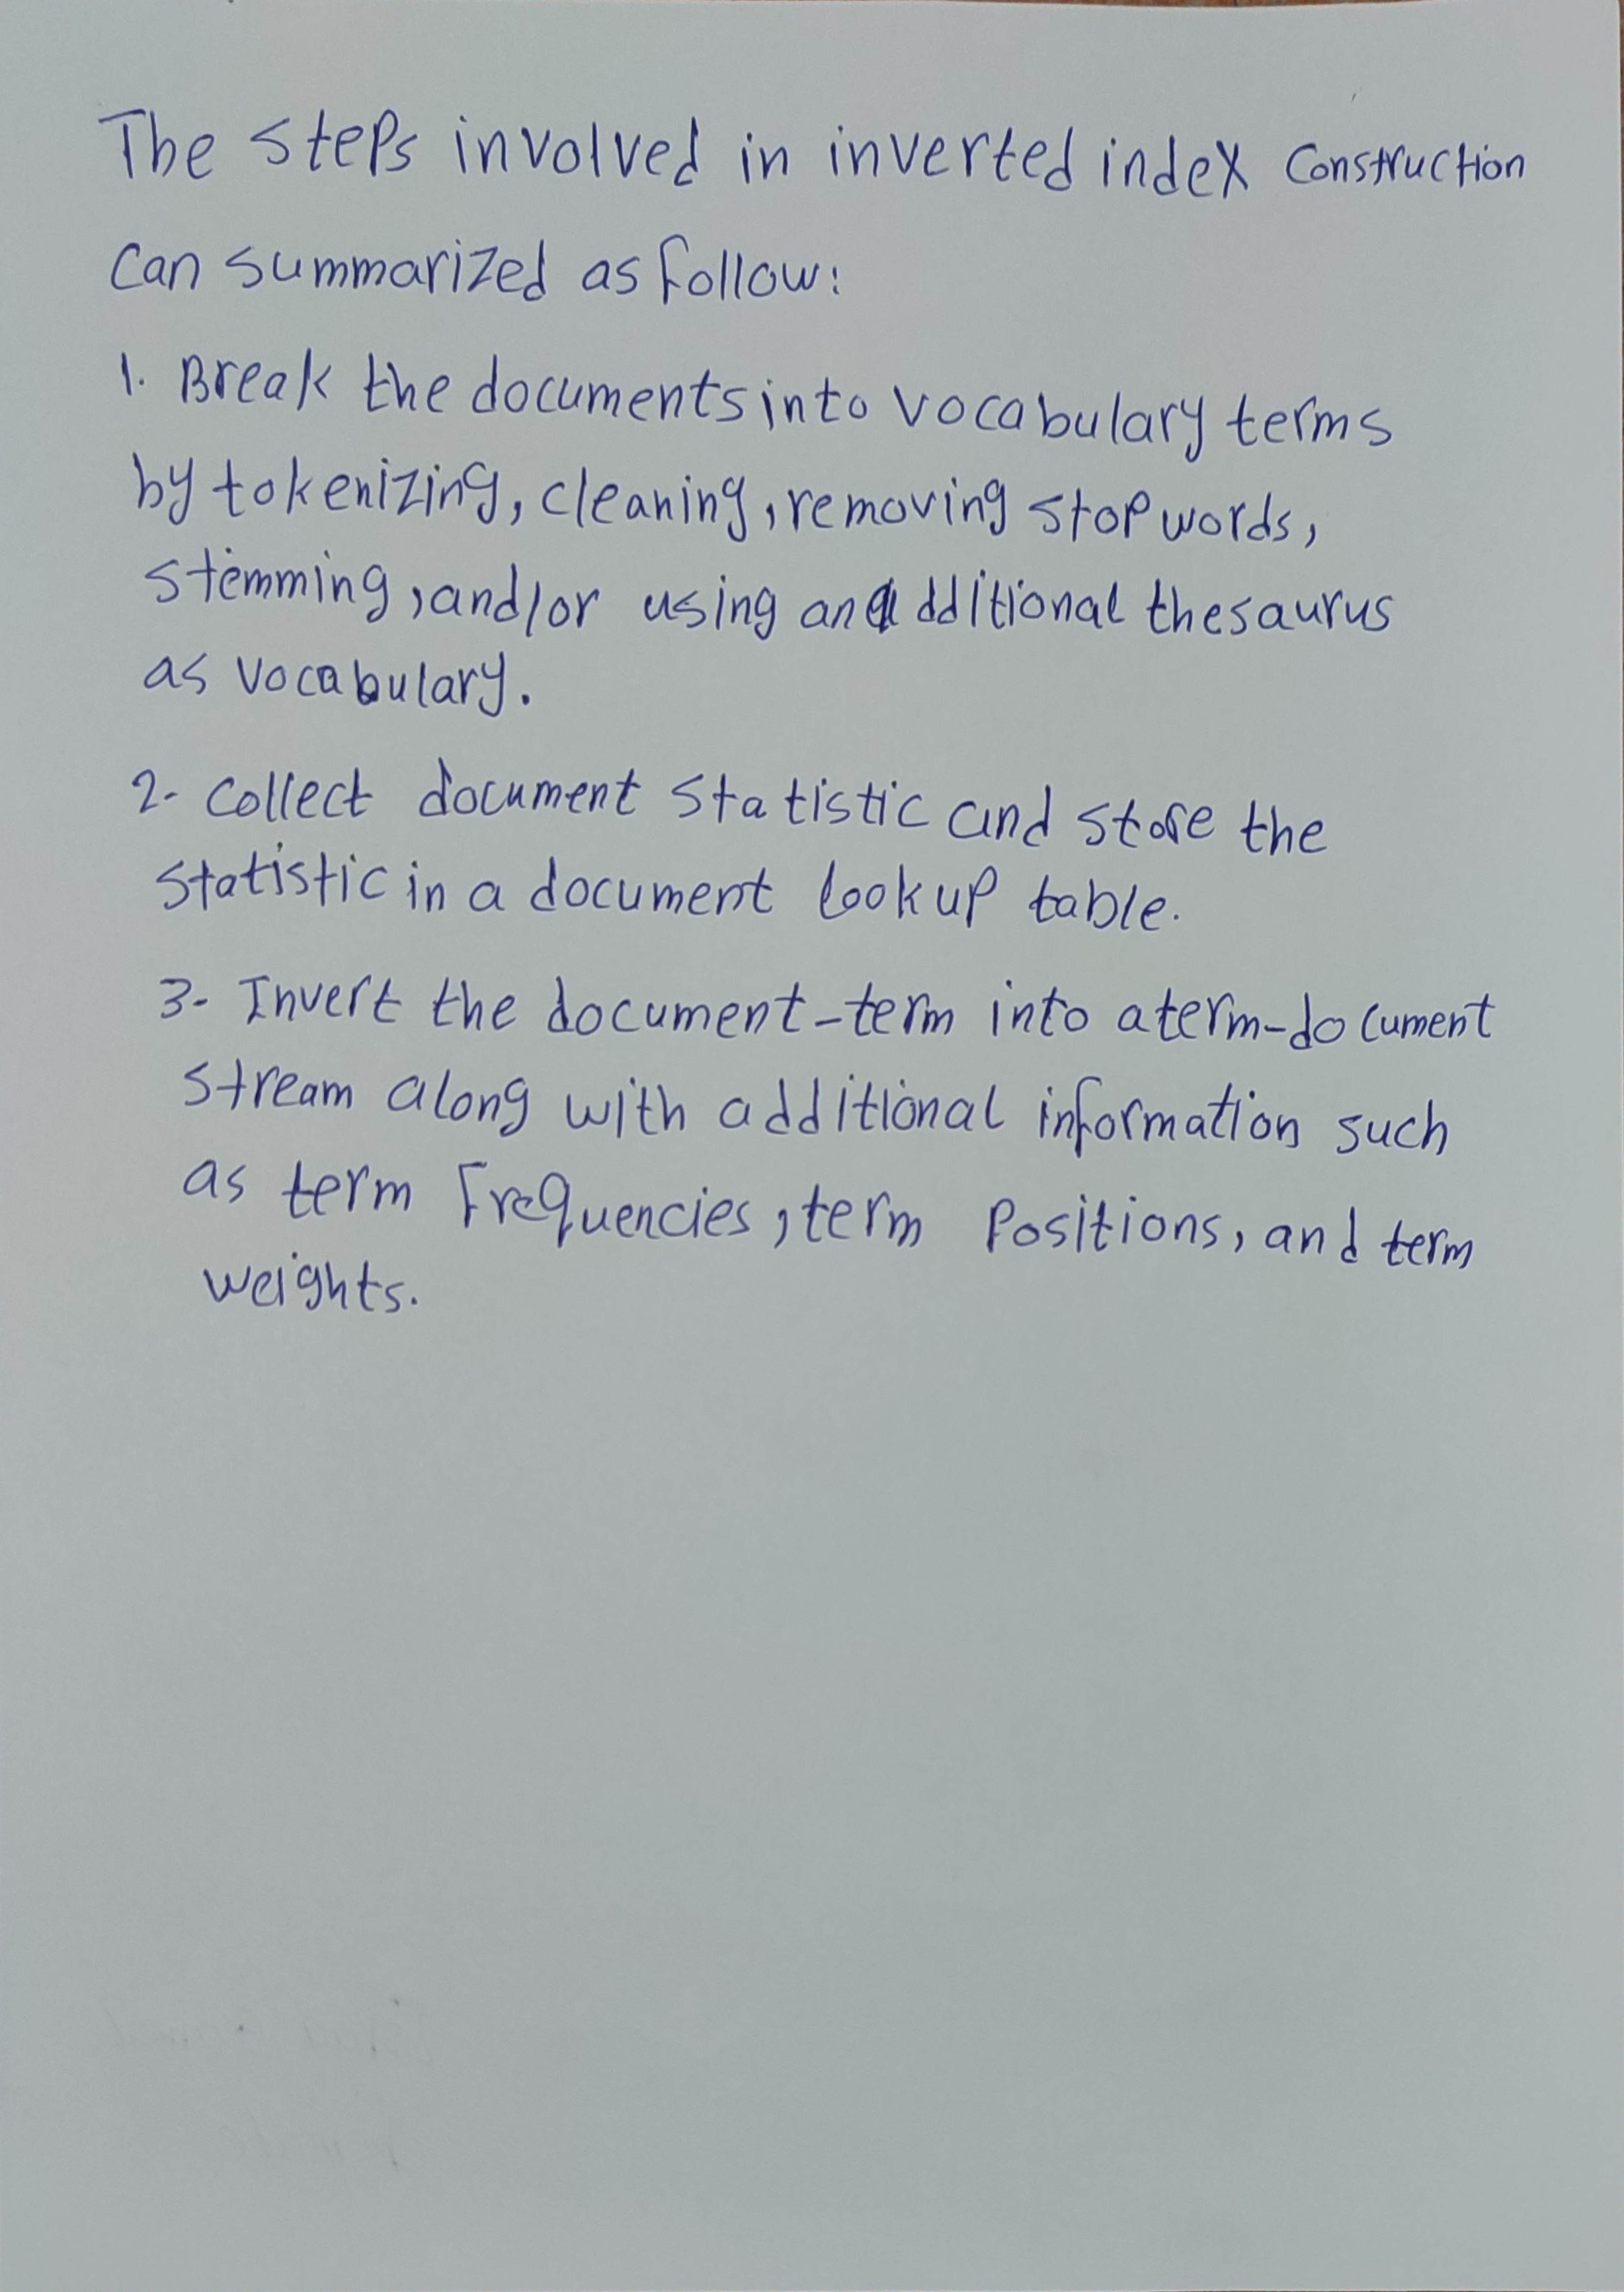 The Steps involved in inverted index Construction
Can summarized as follow:
1. Break the documents into vocabulary terms
by tokenizing, cleaning, removing stop words,
stemming, and/or using an additional thesaurus
as vocabulary.
2- Collect document statistic and store the
statistic in a document lookup table.
3- Invert the document-term into a term-document
stream along with additional information such
as term frequencies, term Positions, and term
weights.